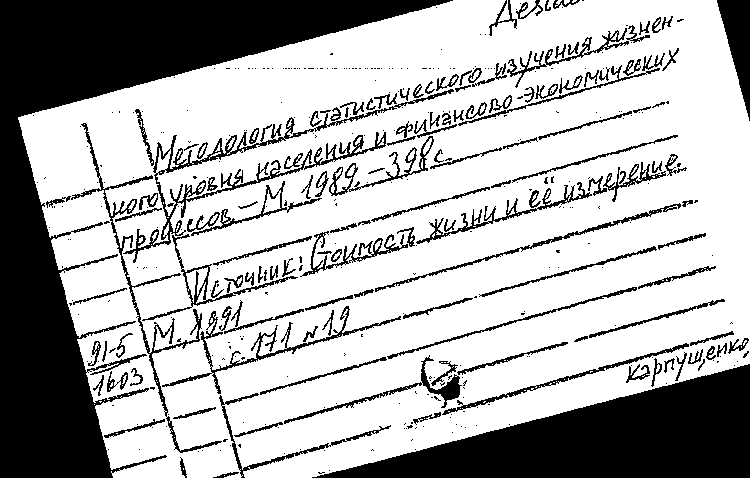 Методология статистического изучения жизнен-
ного уровня населения и финансово-экономических
процессов. – М., 1989. – 398 с.
Источник: Стоимость жизни и её измерение.
М., 1991
с. 171, №19
91-5
1603
Карпущенко,